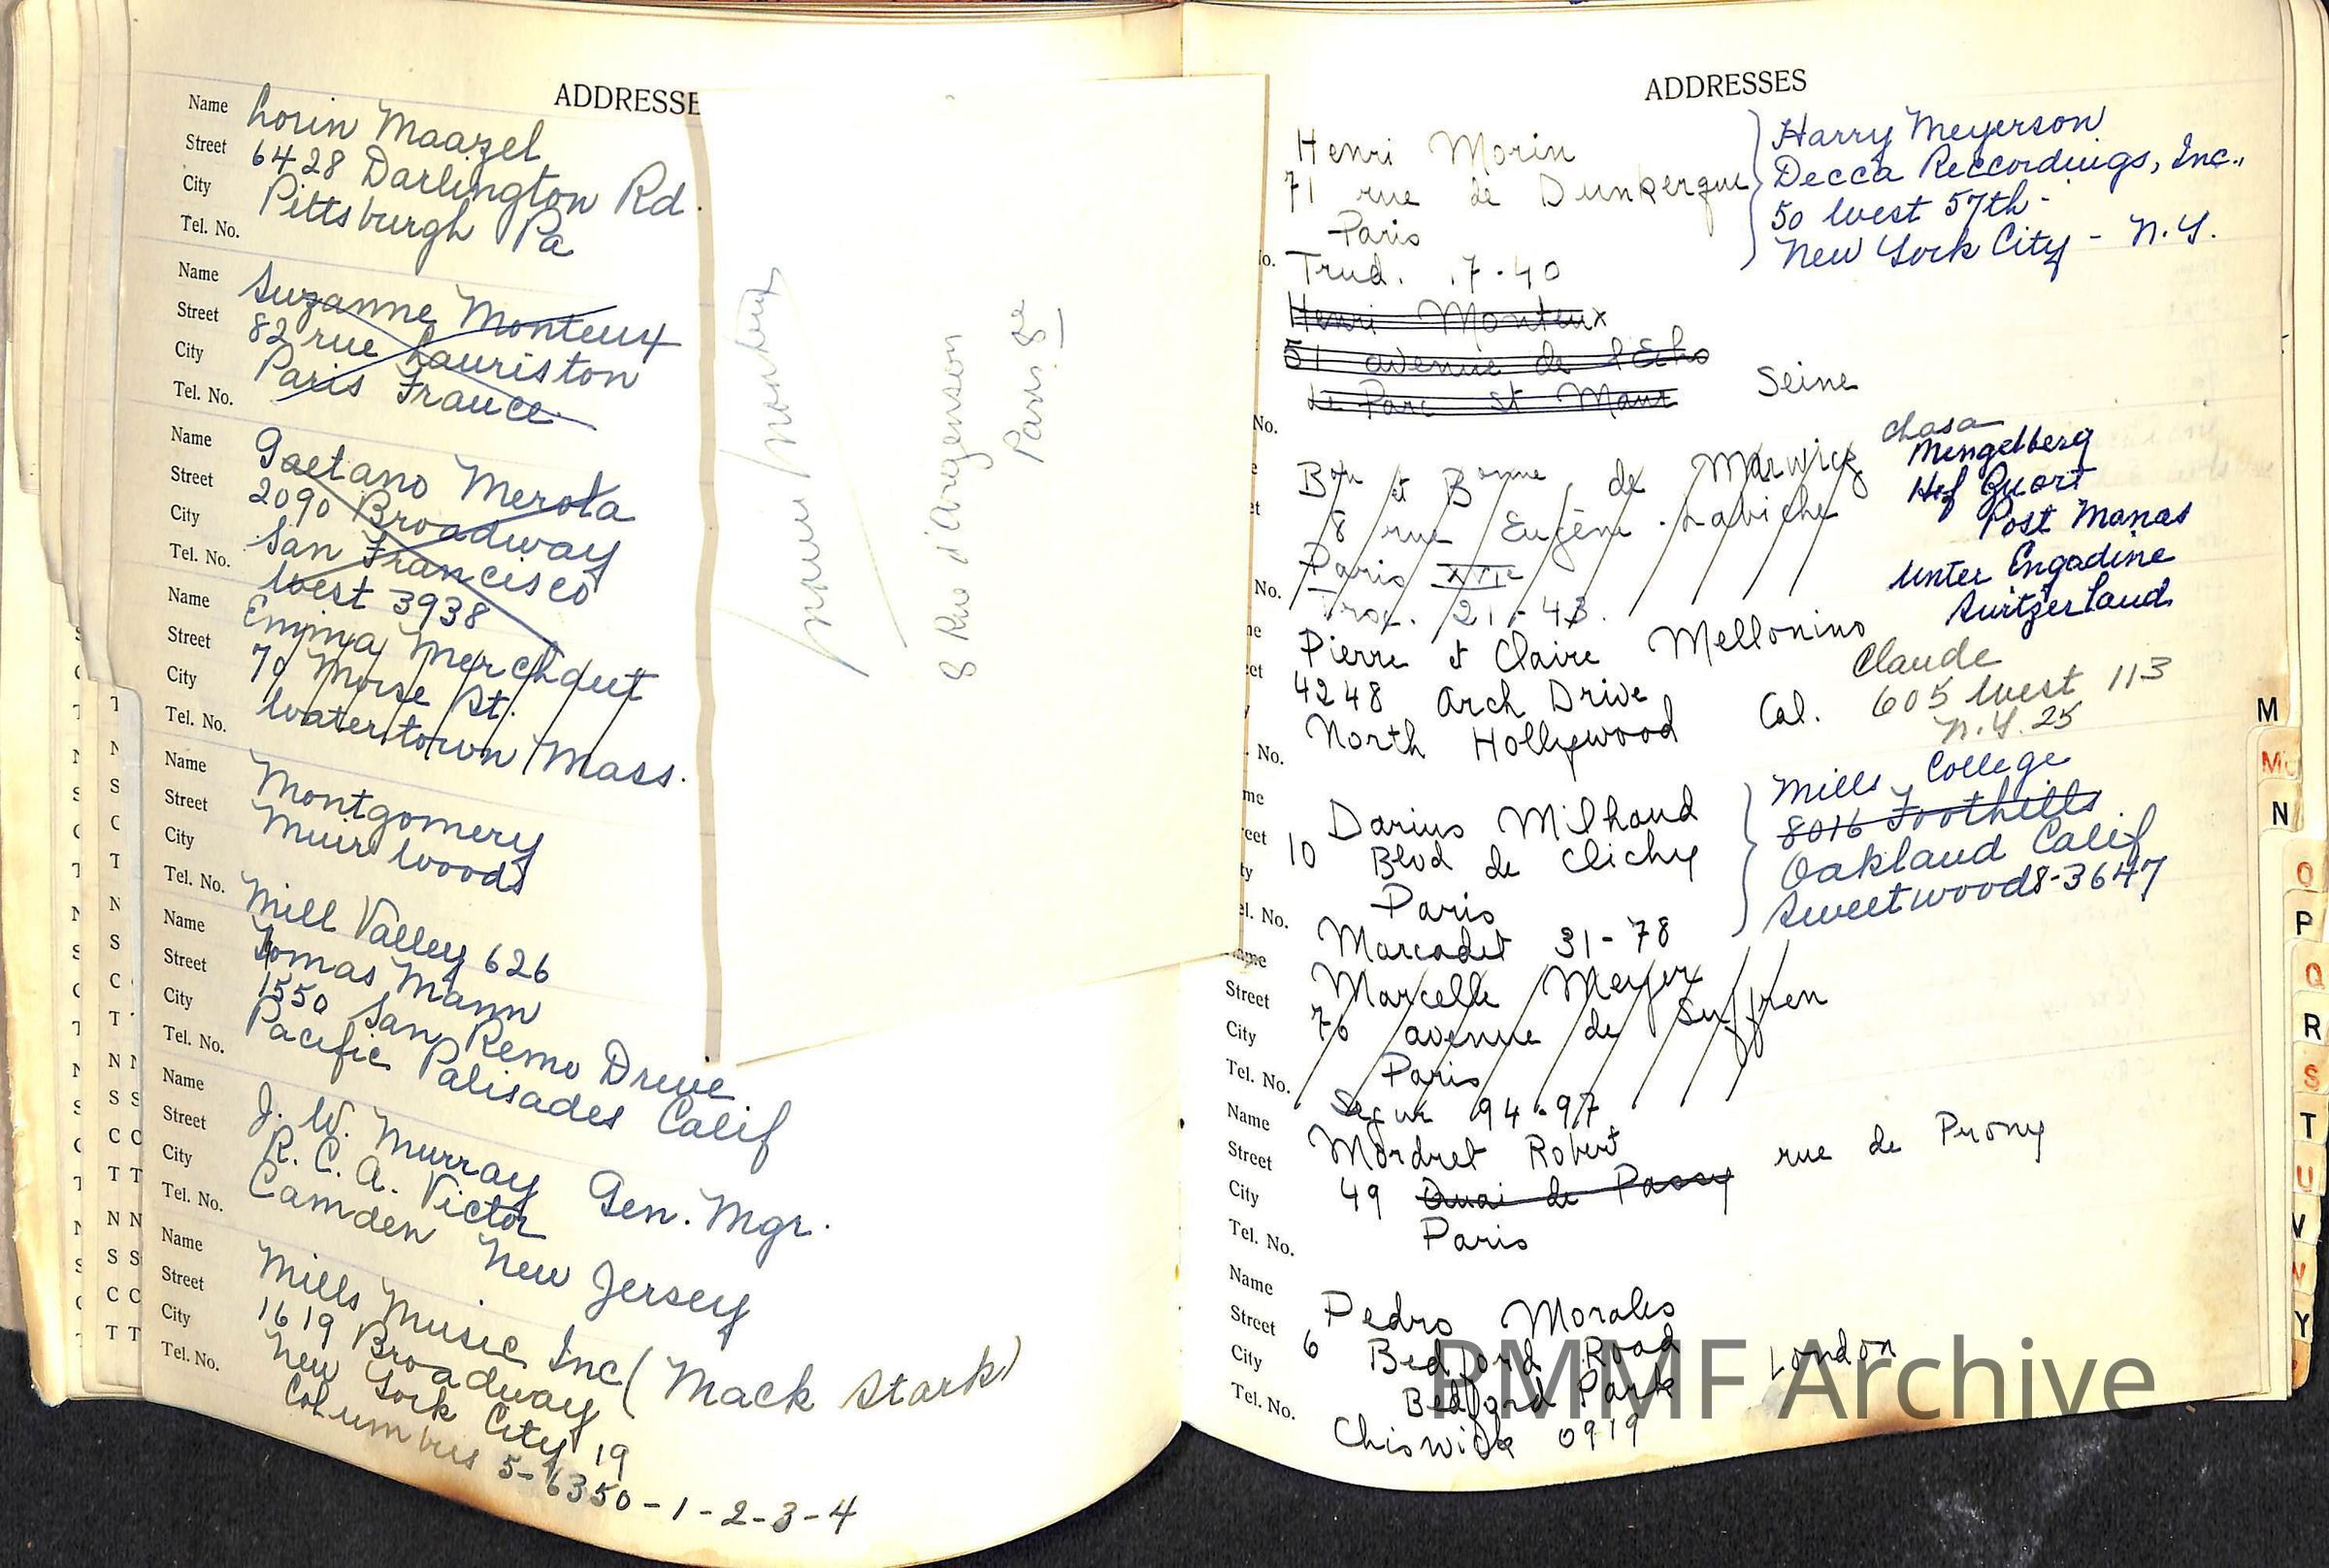 ADDRESSE
Name Lorin Maazel
Street 6428 Darlington Rd.
City Pittsburgh Pa
Tel. No.
Name Suzanne Monteux
Street 82 rue Lauriston
City Paris France
Tel. No.
Name Gaetano Merola
Street 2090 Broadway
City San Francisco
Tel. No. West 3938
Name Emma Merchant
Street 70 Morse St.
City Watertown Mass.
Tel. No.
Name Montgomery
Street Muir Woods
City
Tel. No. Mill Valley 626
Name Tomas Mann
Street 1550 San Remo Drive
City Pacific Palisades Calif
Tel. No.
Name J. W. Murray Gen. Mgr.
Street R. C. A. Victor
City Camden New Jersey
Tel. No.
Name Mills Music Inc (Mack Stark)
Street 1619 Broadway
City New York City 19
Tel. No. Columbus 5-6350-1-2-3-4
8 Rue d'Argenson
Paris 8e
ADDRESSES
Henri Morin
71 rue de Dunkerque
Paris
Trud. .7.40
Harry Meyerson
Decca Reccordings, Inc.,
50 West 57th -
New York City - N.Y.
Henri Monteux
51 avenue de l'Echo
Le Parc St Maur Seine
No.
Bon et Bonne de Marwicz
8 rue Eugène Labiche
Paris XVIe
No. Troc. 21-43.
Chasa
Mengelberg
Hof Zuort
Post Manas
Unter Engadine
Switzerland
Pierre et Claire Mellonino
4248 Arch Drive
North Hollywood Cal.
No.
Claude
605 West 113
N.Y. 25
Darius Milhaud
10 Blvd de Clichy
Paris
Marcadet 31-78
Mills College
8016 Foothills
Oakland Calif
Sweetwood 8-3647
Marcelle Meyer
Street 70 avenue de Suffren
City Paris
Tel. No. Segur 94-97
Name Mordret Robert
Street 49 Quai de Passy rue de Prony
City Paris
Tel. No.
Name Pedro Morales
Street 6 Bedford Road London
City Bedford Park
Tel. No. Chiswick 0919
M
N
O
P
Q
R
S
T
U
V
Y
PMMF Archive